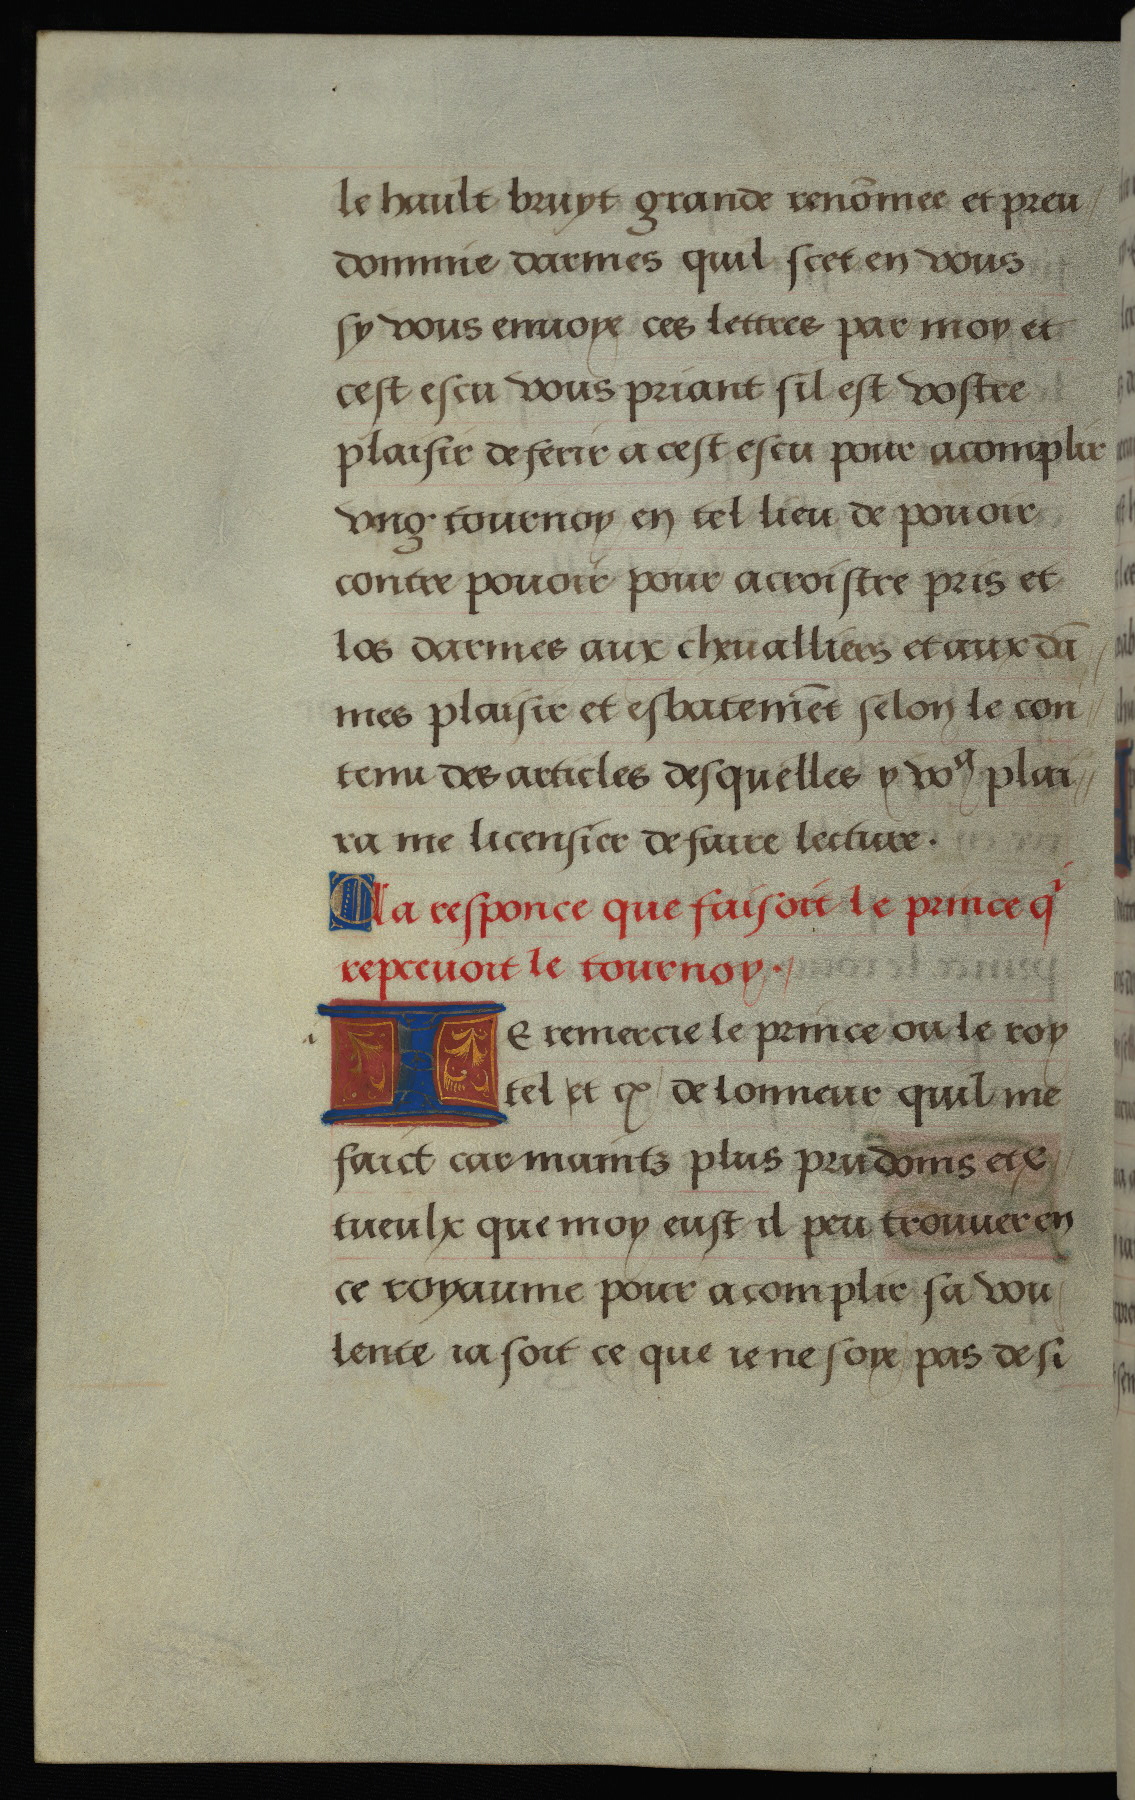 le hault bruyt grande renōmee et preu/
dommie darmes quil scet en vous
sy vous enuoye ces lettres par moy et
cest escu vous priant sil est vostre
plaisir de ferir a cest escu pour acomplir
vng tournoy en tel lieu de pouoir
contre pouoir pour acroistre pris et
los darmes aux cheualliers et aux dā/
mes plaisir et esbatemēt selon le con//
tenu des articles desquelles y voꝰ plai//
ra me licensier de faire lecture.
la responce que faisoit le prince qͥ
repceuoit le tournoy./
IE remercie le prince ou le roy
tel et de lonneur quil me
faict car maintz plus prudoms et
tueulx que moy eust il peu trouuer en
ce royaume pour acomplir sa vou/
lente ia soit ce que ie ne soye pas de si